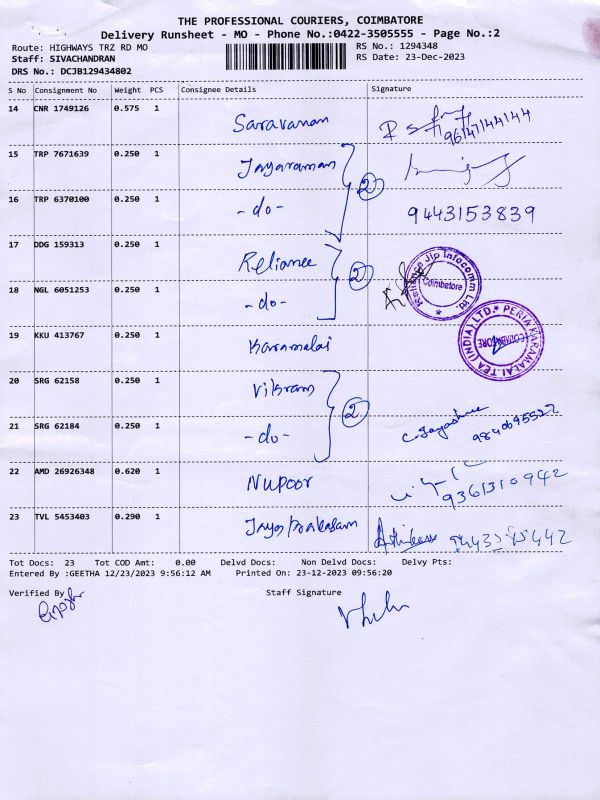 THE PROFESSIONAL COURIERS, COIMBATORE
Delivery Runsheet - MO - Phone No.:0422-3505555 - Page No.:2
Route: HIGHWAYS TRZ RD MO RS No.: 1294348
Staff: SIVACHANDRAN RS Date: 23-Dec-2023
DRS No.: DCJB129434802
S No Consignment No Weight PCS Consignee Details Signature
14 CNR 1749126 0.575 1 Saravanan
15 TRP 7671639 0.250 1 Jayaraman
16 TRP 6370100 0.250 1 -do- 2 9443153839
17 DDG 159313 0.250 1 Reliance
Reliance Jio Infocomm Ltd. Coimbatore
18 NGL 6051253 0.250 1 -do- 2
19 KKU 413767 0.250 1 Karamalai
PERIA KARAMALAI TEA (INDIA) LTD. COIMBATORE
20 SRG 62158 0.250 1 Vikram
21 SRG 62184 0.250 1 -do- 2 C. Jayashree
22 AMD 26926348 0.620 1 Nupoor 9361310942
23 TVL 5453403 0.290 1 Jayaprakasam
Tot Docs: 23 Tot COD Amt: 0.00 Delvd Docs: Non Delvd Docs: Delvy Pts:
Entered By :GEETHA 12/23/2023 9:56:12 AM Printed On: 23-12-2023 09:56:20
Verified By Staff Signature